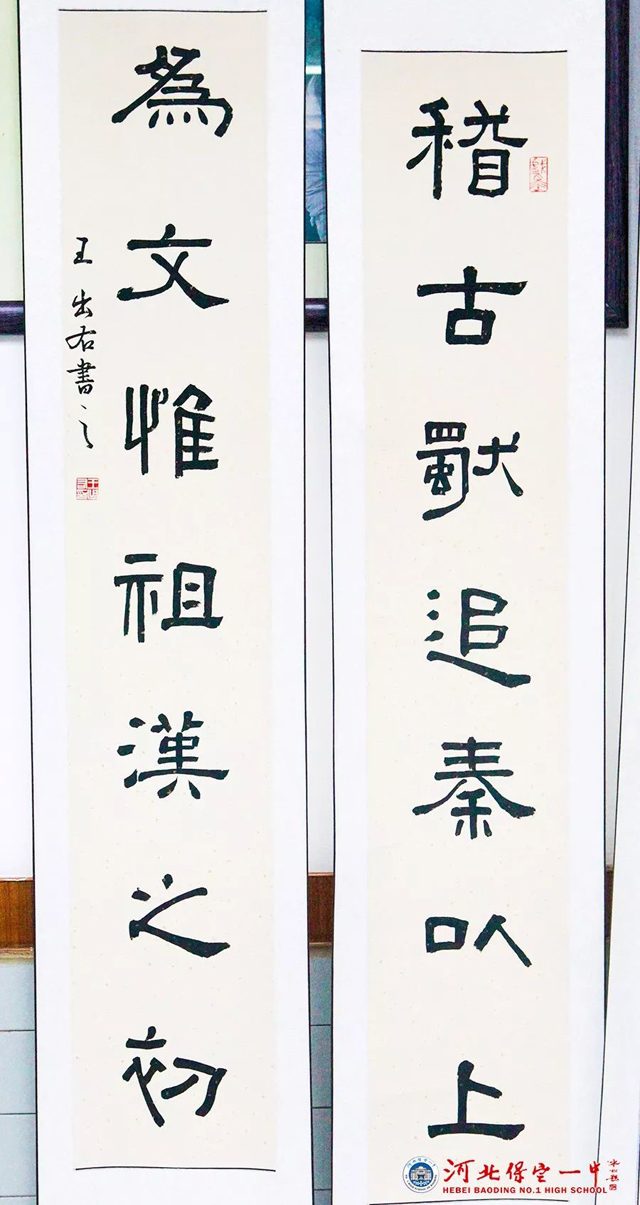 稽古獸追秦以上
為文惟祖漢之初
王出右書之
河北保定一中
HEBEI BAODING NO.1 HIGH SCHOOL